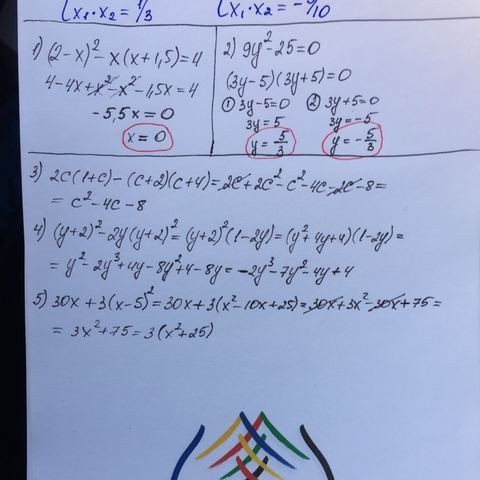 x₁·x₂ = 1/3
x₁·x₂ = -9/10
1) (2-x)² - x(x+1,5)=4
4-4x+x²-x²-1,5x=4
-5,5x=0
x=0
2) 9y²-25=0
(3y-5)(3y+5)=0
① 3y-5=0
3y=5
y=5/3
② 3y+5=0
3y=-5
y=-5/3
3) 2c(1+c)-(c+2)(c+4)=2c+2c²-c²-4c-2c-8=
= c²-4c-8
4) (y+2)²-2y(y+2)²=(y+2)²(1-2y)=(y²+4y+4)(1-2y)=
= y²-2y³+4y-8y²+4-8y=-2y³-7y²-4y+4
5) 30x+3(x-5)²=30x+3(x²-10x+25)=30x+3x²-30x+75=
= 3x²+75=3(x²+25)